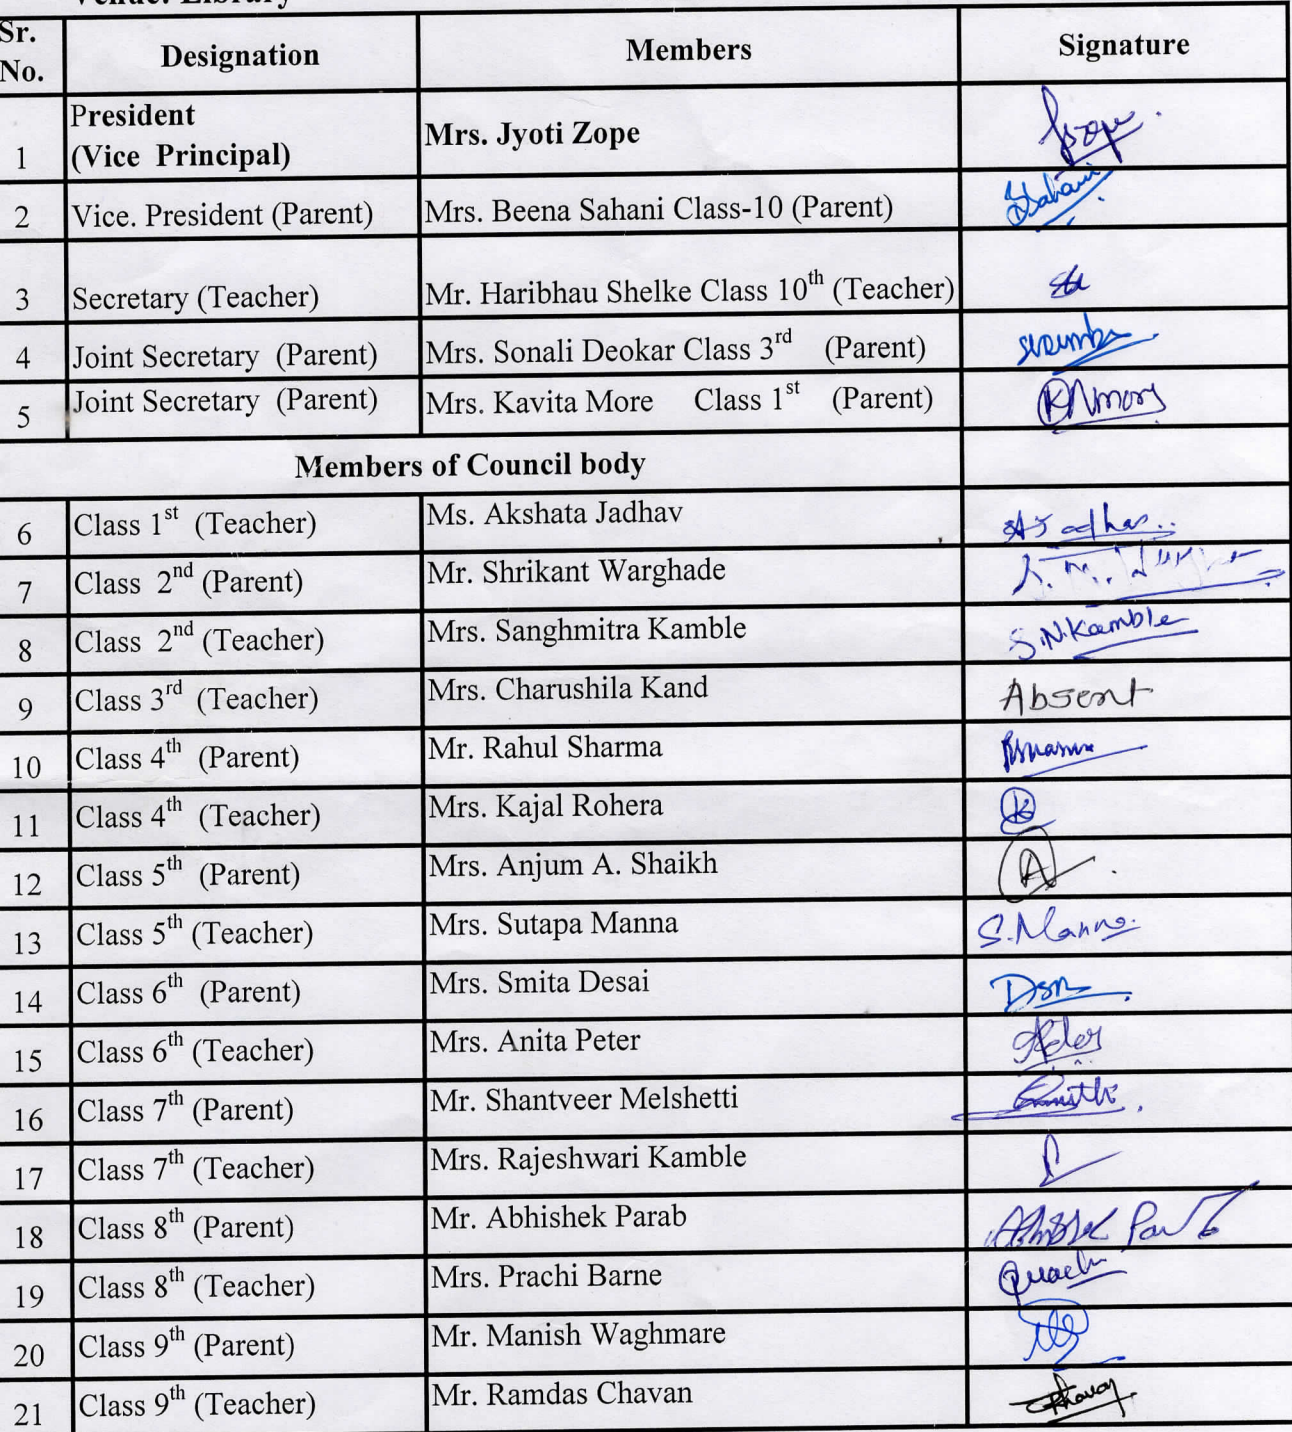 Venue: Library
Sr. No. Designation Members Signature
1 President (Vice Principal) Mrs. Jyoti Zope
2 Vice. President (Parent) Mrs. Beena Sahani Class-10 (Parent) Sahani
3 Secretary (Teacher) Mr. Haribhau Shelke Class 10th (Teacher)
4 Joint Secretary (Parent) Mrs. Sonali Deokar Class 3rd (Parent)
5 Joint Secretary (Parent) Mrs. Kavita More Class 1st (Parent)
Members of Council body
6 Class 1st (Teacher) Ms. Akshata Jadhav
7 Class 2nd (Parent) Mr. Shrikant Warghade
8 Class 2nd (Teacher) Mrs. Sanghmitra Kamble S.N.Kamble
9 Class 3rd (Teacher) Mrs. Charushila Kand Absent
10 Class 4th (Parent) Mr. Rahul Sharma
11 Class 4th (Teacher) Mrs. Kajal Rohera K
12 Class 5th (Parent) Mrs. Anjum A. Shaikh A
13 Class 5th (Teacher) Mrs. Sutapa Manna S.Manna
14 Class 6th (Parent) Mrs. Smita Desai
15 Class 6th (Teacher) Mrs. Anita Peter
16 Class 7th (Parent) Mr. Shantveer Melshetti
17 Class 7th (Teacher) Mrs. Rajeshwari Kamble
18 Class 8th (Parent) Mr. Abhishek Parab
19 Class 8th (Teacher) Mrs. Prachi Barne
20 Class 9th (Parent) Mr. Manish Waghmare
21 Class 9th (Teacher) Mr. Ramdas Chavan